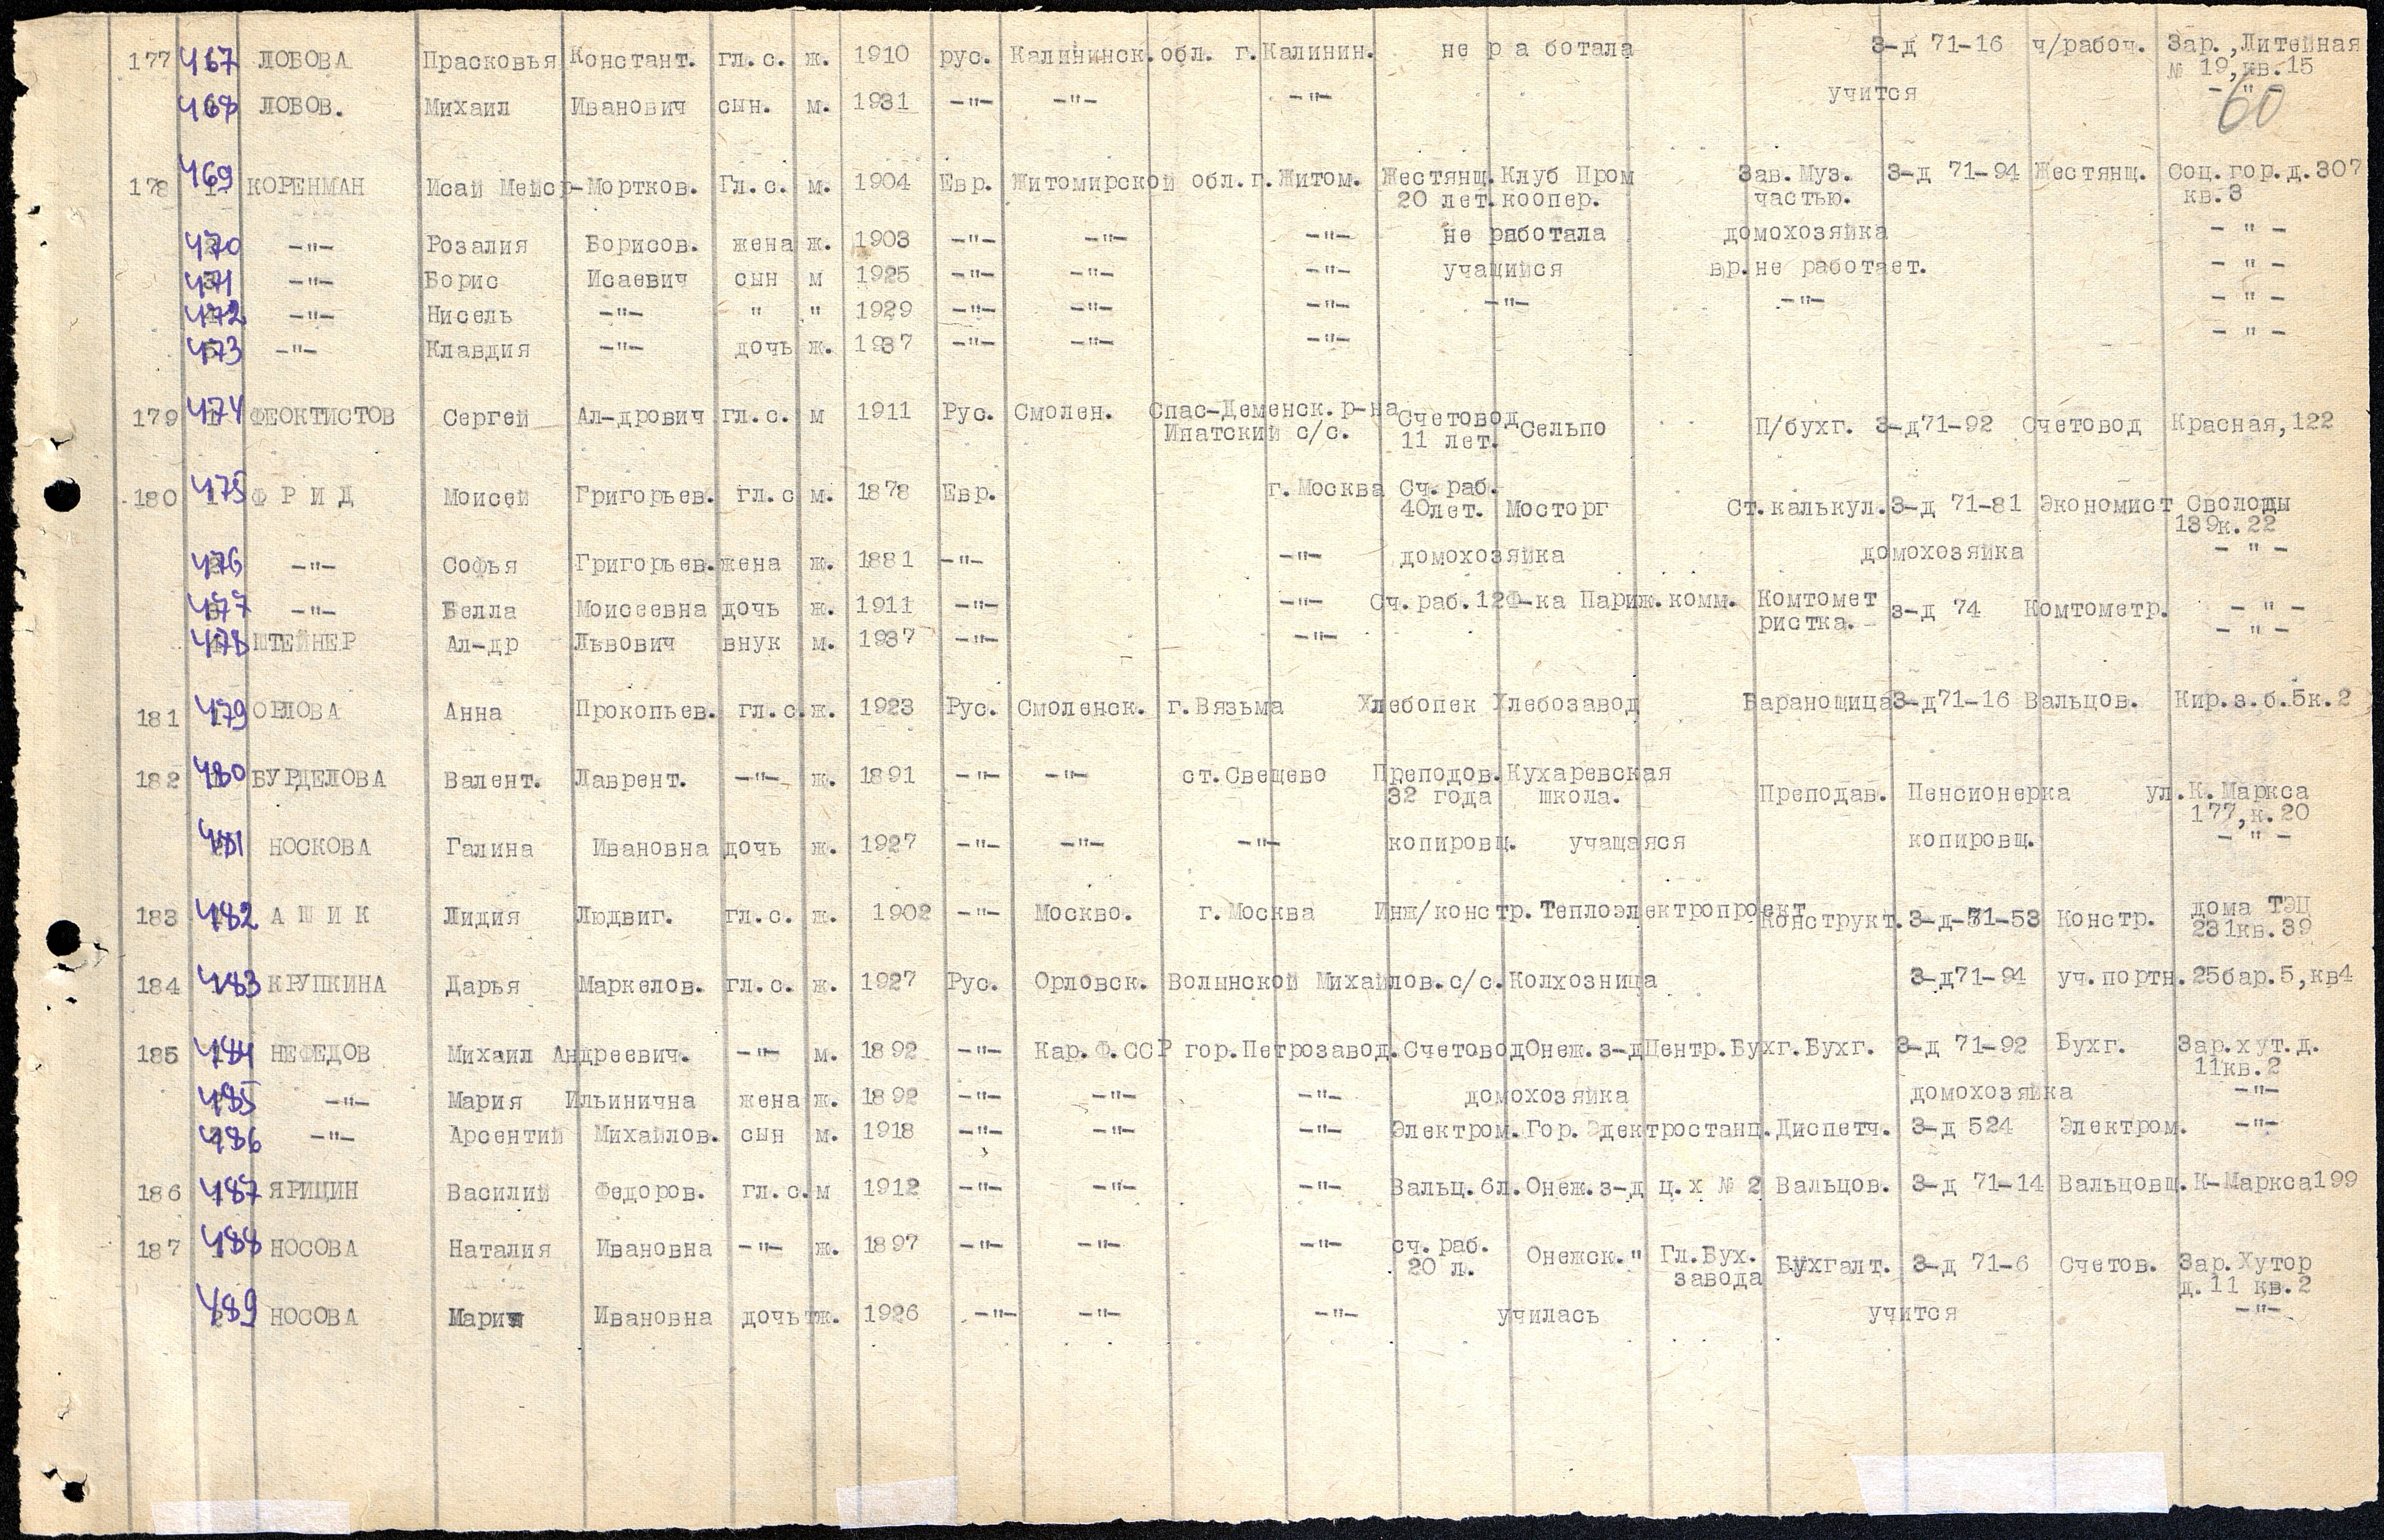 177 467 ЛОБОВА Прасковья Констант. гл.с. ж. 1910 рус. Калининск.обл. г.Калинин. не р а ботала З-д 71-16 ч/рабоч. Зар.,Литейная
№ 19,кв.15
468 ЛОБОВ. Михаил Иванович сын. м. 1931 -"- -"- -"- учится - " -
60
178 469 КОРЕНМАН Исай Мейср-Мортков. Гл.с. м. 1904 Евр. Житомирской обл.г.Житом. Жестянщ. Клуб Пром Зав.Муз. З-д 71-94 Жестянщ. Соц.гор.д.307
20 лет.коопер. частью. кв.3
470 -"- Розалия Борисов. жена ж. 1903 -"- -"- -"- не работала домохозяйка - " -
471 -"- Борис Исаевич сын м 1925 -"- -"- -"- учащийся вр.не работает. - " -
472 -"- Нисель -"- " " 1929 -"- -"- -"- -"- -"- - " -
473 -"- Клавдия -"- дочь ж. 1937 -"- -"- -"- - " -
179 474 ФЕОКТИСТОВ Сергей Ал-дрович гл.с. м 1911 Рус. Смолен. Спас-Деменск.р-на Счетовод Сельпо П/бухг. З-д71-92 Счетовод Красная,122
Ипатский с/с. 11 лет.
180 475 Ф Р И Д Моисей Григорьев. гл.с м. 1878 Евр. г.Москва Сч.раб. Мосторг Ст.калькул.З-д 71-81 Экономист Своломы
40лет. 139к.22
476 -"- Софья Григорьев.жена ж. 1881 -"- -"- домохозяйка домохозяйка - " -
477 -"- Белла Моисеевна дочь ж. 1911 -"- -"- Сч.раб.12Ф-ка Париж.комм. Комтомет з-д 74 Комтометр. - " -
ристка.
478 ШТЕЙНЕР Ал-др Львович внук м. 1937 -"- -"- - " -
181 479 ОРЛОВА Анна Прокопьев. гл.с.ж. 1923 Рус. Смоленск. г.Вязьма Хлебопек Хлебозавод БараношицаЗ-д71-16 Вальцов. Кир.з.б.5к.2
182 480 БУРДЕЛОВА Валент. Лаврент. -"- ж. 1891 -"- -"- ст.Свещево Преподов.Кухаревская Преподав. Пенсионерка ул.К.Маркса
32 года школа. 177,к.20
481 НОСКОВА Галина Ивановна дочь ж. 1927 -"- -"- -"- копировщ. учащаяся копировщ. - " -
183 482 А Ш И К Лидия Людвиг. гл.с. ж. 1902 -"- Москво. г.Москва Инж/констр.Теплоэлектропроект Конструкт.З-д-71-53 Констр. дома ТЭЦ
231кв.39
184 483 КРУПКИНА Дарья Маркелов. гл.с. ж. 1927 Рус. Орловск. Волынской Михайлов.с/с.Колхозница З-д71-94 уч.портн.25бар.5,кв4
185 484 НЕФЕДОВ Михаил Андреевич. -"- м. 1892 -"- Кар.Ф.ССР гор.Петрозавод.СчетоводОнеж.з-дЦентр.Бухг.Бухг. З-д 71-92 Бухг. Зар.хут.д.
11кв.2
485 -"- Мария Ильинична жена ж. 1892 -"- -"- -"- домохозяйка домохозяйка -"-
486 -"- Арсентий Михайлов. сын м. 1918 -"- -"- -"- Электром.Гор.Электростанц.Диспетч. З-д 524 Электром. -"-
186 487 ЯРИЦИН Василий Федоров. гл.с.м 1912 -"- -"- -"- Вальц.6л.Онеж.з-д ц.х № 2 Вальцов. З-д 71-14 Вальцовщ.К-Маркса199
187 488 НОСОВА Наталия Ивановна -"- ж. 1897 -"- -"- -"- сч.раб. Онежск." Гл.Бух. Бухгалт. З-д 71-6 Счетов. Зар.Хутор
20 л. завода д.11 кв.2
489 НОСОВА Мария Ивановна дочь ж. 1926 -"- -"- -"- училась учится -"-